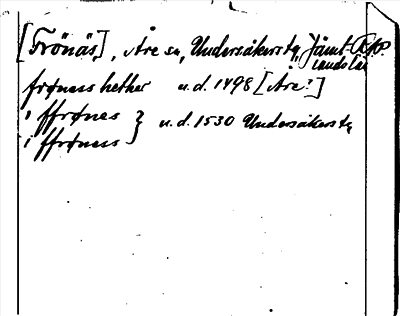 [Frönäs], Åre sn, Undersåkers tg, Jämtlands län
frønæss hether u.d. 1498 [Åre?]
i ffrønes } u.d. 1530 Undersåkers tg
i ffrønæss